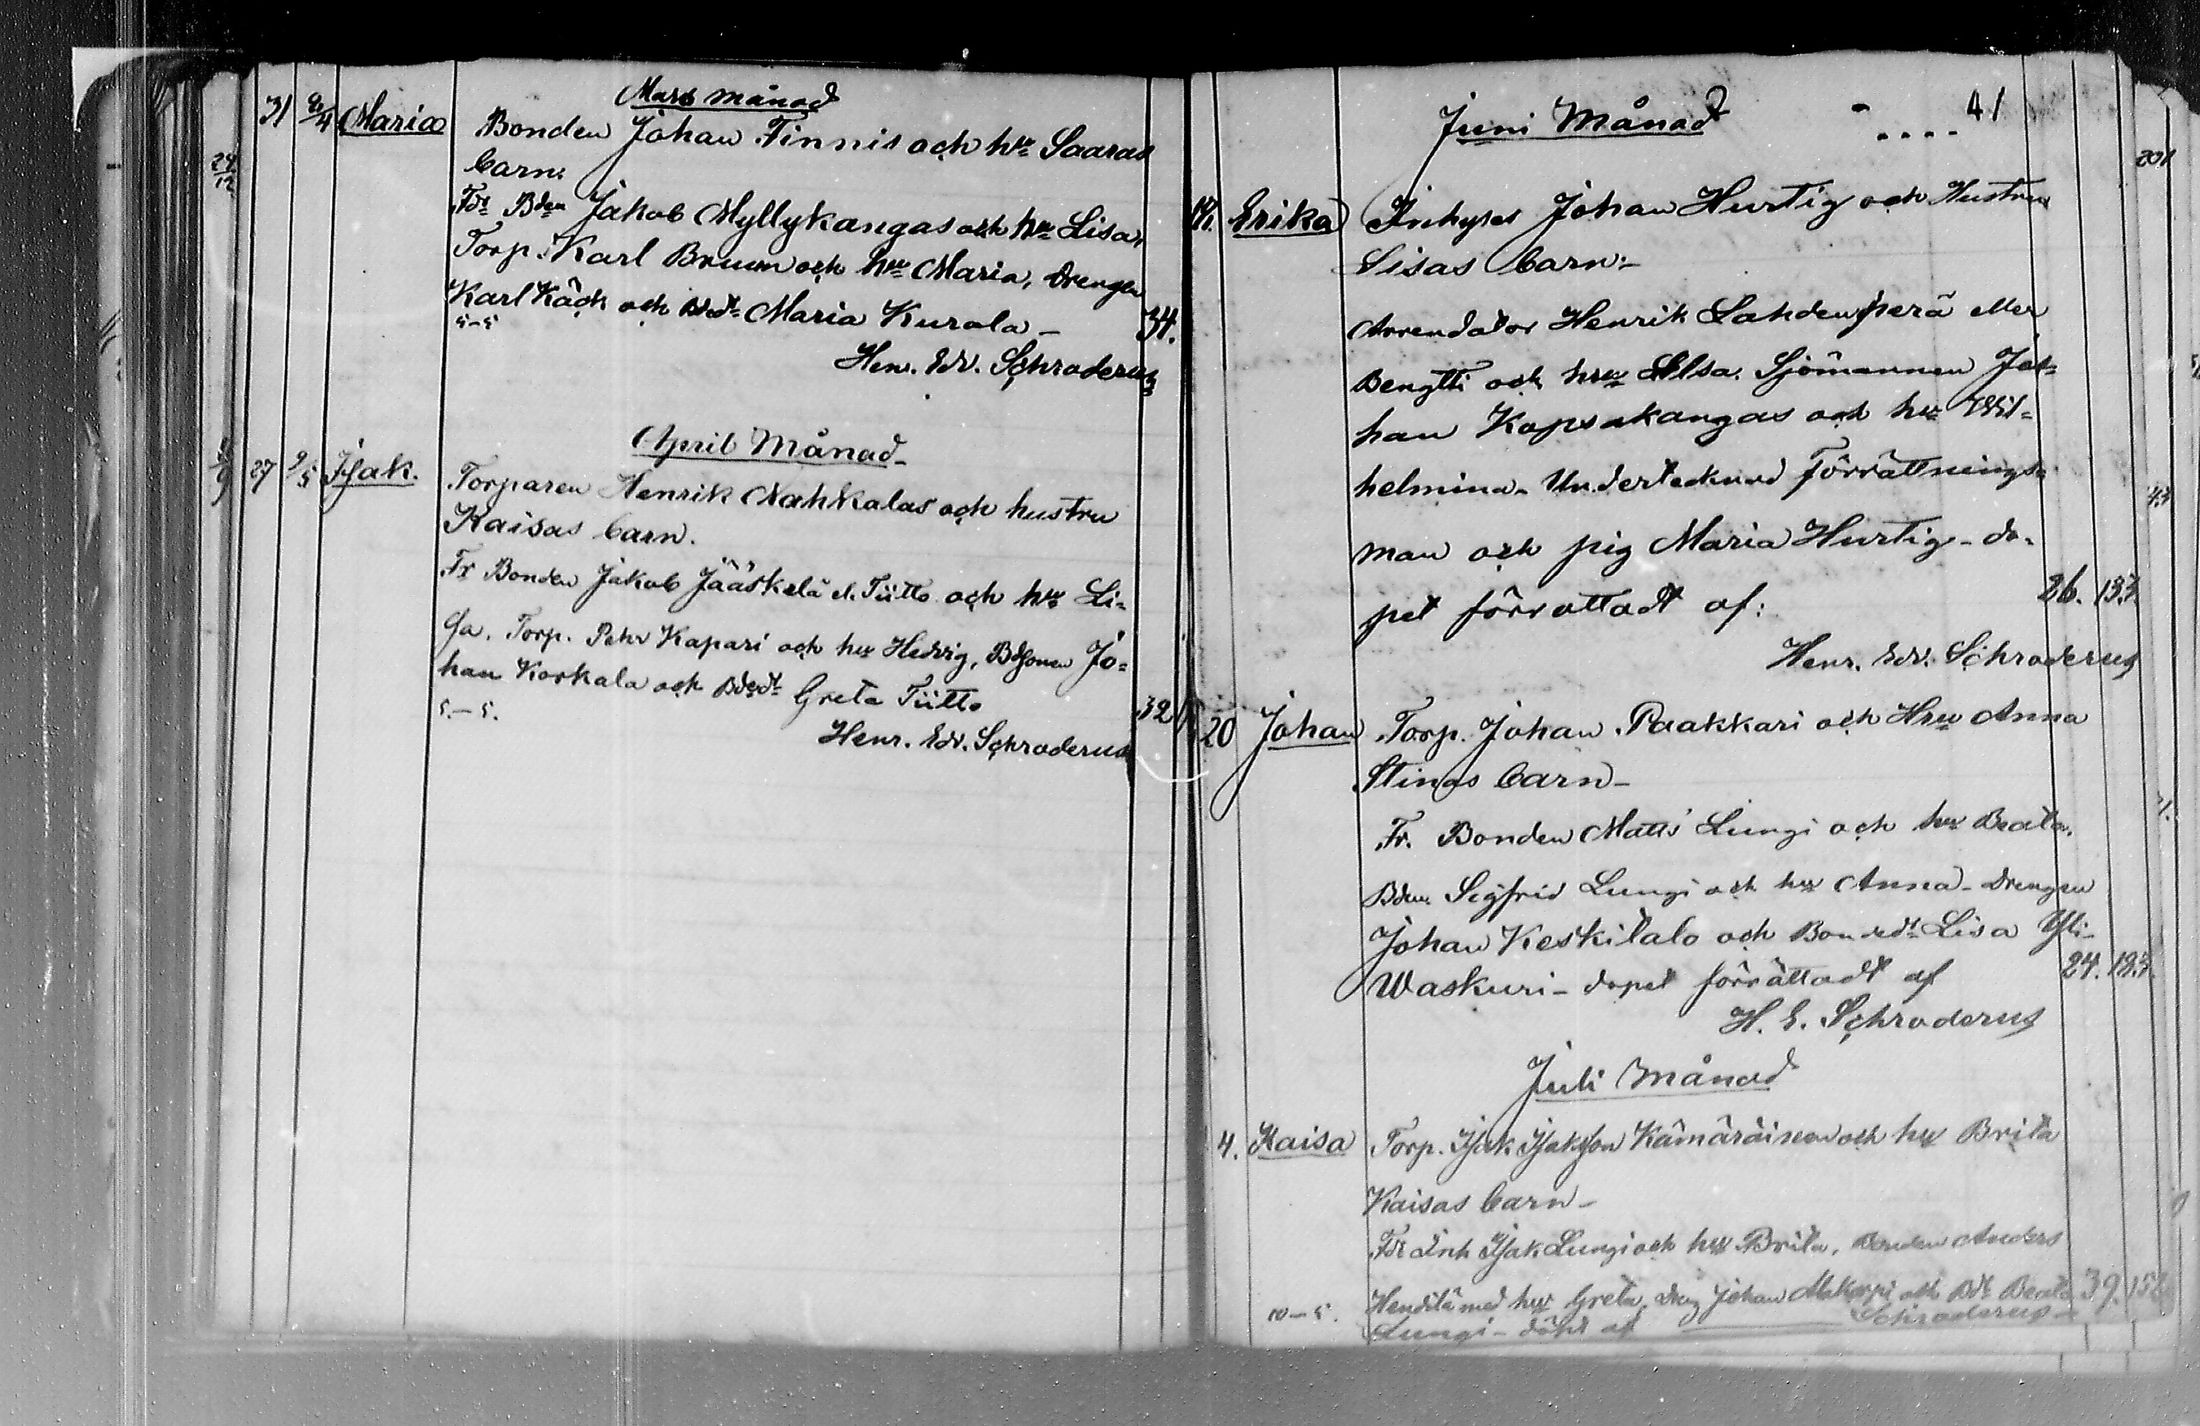 Mars månad
31 2/4 Maria Bonden Johan Finnis och hru Saaras
barn.
24/12
Fdr Bden Jakob Myllykangas och hru Lisa,
Torp. Karl Bruun och hru Maria, Drengen
Karl Käck och Bdr Maria Kurola – 34.
5–5
Henr. Edv. Schroderus
April Månad
27 9/5 Isak. Torparen Henrik Nahkalas och hustru
Kaisas barn.
Fr Bonden Jakob Jääskelä el. Tiitto och hru Li-
sa, Torp. Pehr Kapari och hru Hedvig, Bdsonen Jo-
han Korkala och Bdedr Greta Tiitto 32
5.–5.
Henr. Edv. Schroderus
Juni Månad 41
Erika Inhyses Johan Hurtig och Hustru
Lisas barn:–
Arrendator Henrik Lahdenperä eller
Bengtti och hru Elsa. Sjömannen Jo-
han Kopsakangas och hru Wil-
helmina – Undertecknad Förrättnings-
man och pig Maria Hurtig – do-
pet förrättadt af: 26. 183.
Henr. Edv. Schroderus
20 Johan Torp. Johan Paakkari och Hru Anna
Stinas barn –
Fr. Bonden Matts Lungi och hru Beata.
Bden Sigfrid Lungi och hru Anna – Drengen
Johan Keskitalo och Bondedr Lisa Yli-
Waskuri – dopet förrättadt af 24. 183.
H. E. Schroderus
Juli Månad
4. Kaisa Torp. Isak Isaksson Kämäräinen och hru Brita
Kaisas barn –
Fdr Inh Isak Lungi och hru Brita, Bonden Anders
10–5. Hendilä med hru Greta, Dreng Johan och Bdr Beata 39.
Lungi – döpt af Schroderus –